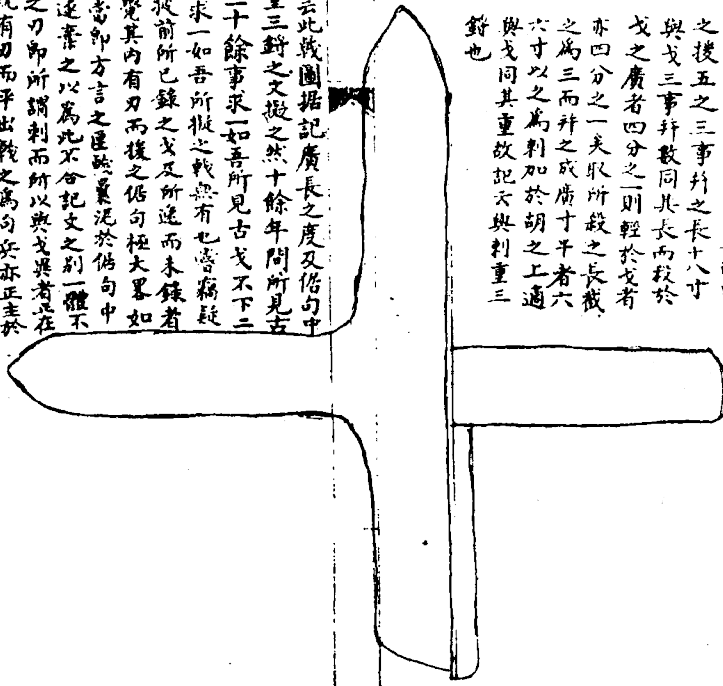 之援五之三事幷之長十八寸
與戈三事幷數同其長而殺於
戈之廣者四分之一則輕於戈者
亦四分之一矣取所殺之長截
之爲三而幷之成廣寸半者六
六寸以之爲刺加於胡之上適
與戈同其重故記云與刺重三
鋝也
云此戟圖据記廣長之度及倨句中
三鋝之文擬之然十餘年間所見古
十餘事求一如吾所見古戈不下二
求一如吾所擬之戟無有也嘗竊疑
前所已錄之戈及所逸而未錄者
覺其內有刃而援之倨句極大畧如
當卽方言之匽戟曩泥於倨句中
遂棄之以爲此不合記文之別一體不
之刃卽所謂刺而所以與戈異者正在
有刃而平出戟之爲句兵亦正主於